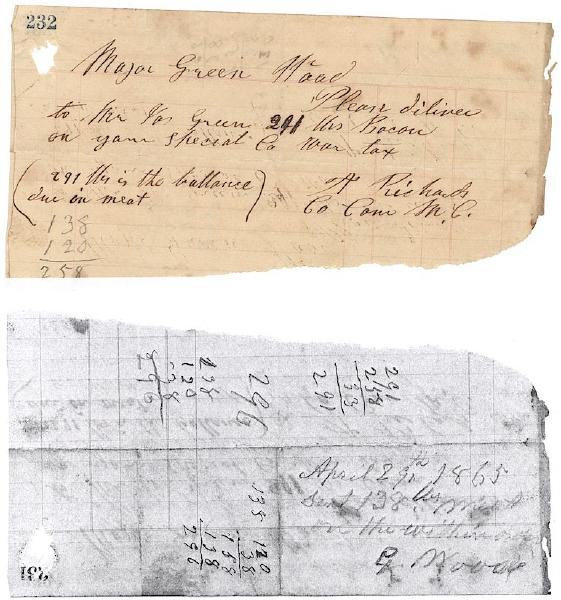 232
Major Green Wood
Please diliver
to Mr Jas Green 291 lbs Bacon
on your Special Co war tax
(291 lbs is the ballance
due in meat)
A Richards
Co Com M.C.
138
120
258
291
258
33
291
296
138
120
258
38
296
April 29th 1865
Sent 138 lbs meat
on the within order
G Wood
138
120
38
158
138
296
231